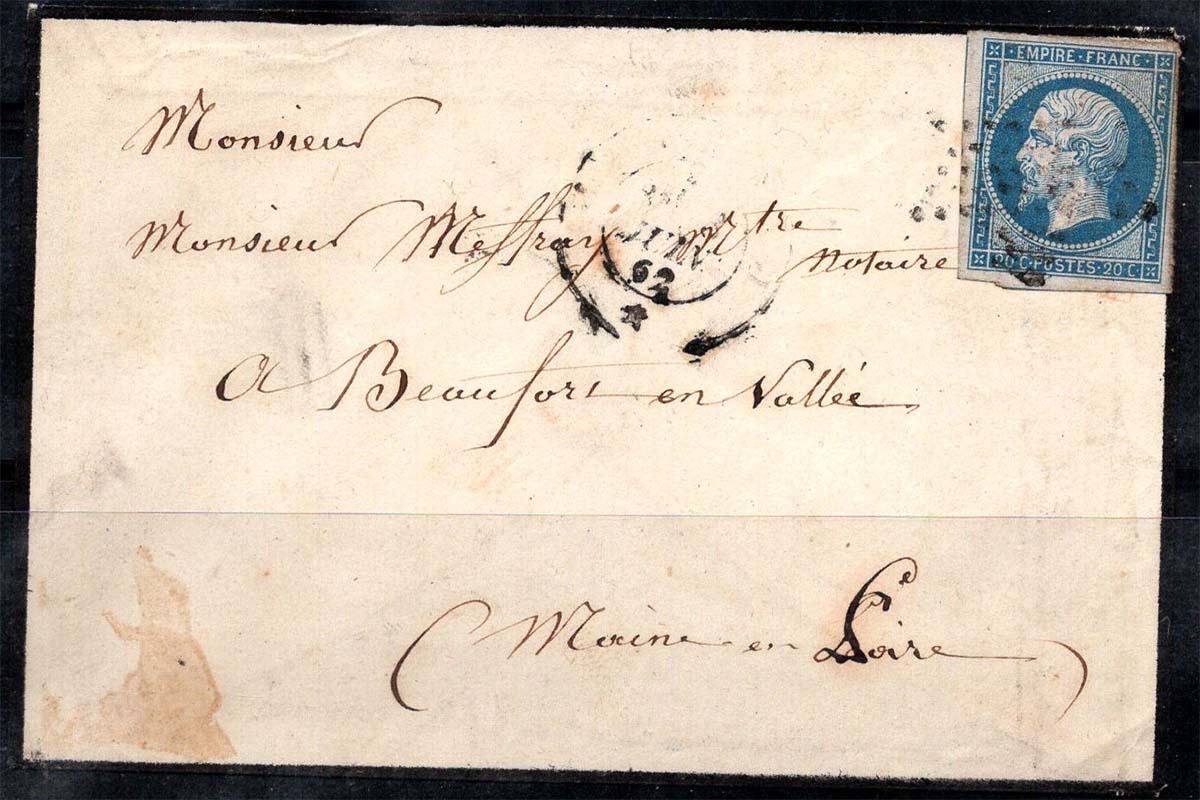 Monsieur
Monsieur Meffray Mtre
notaire
A Beaufort en Vallée
(Maine en Loire)
JUIN
62
EMPIRE · FRANC ·
20 C · POSTES · 20 C ·